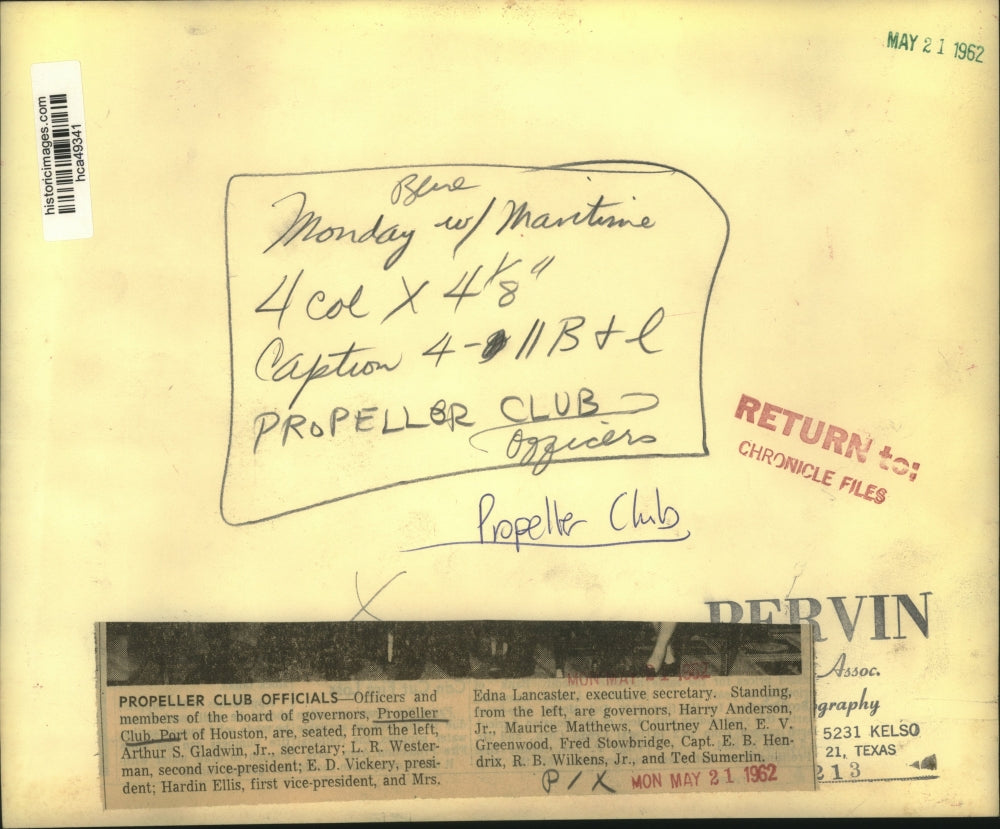 MAY 21 1962
historicimages.com
hca49341
Blue
Monday w/ Maritime
4 col X 4 1/8"
Caption 4- 11 B + l
PROPELLER CLUB
Officers
Propeller Club
RETURN to:
CHRONICLE FILES
X
PERVIN
Assoc.
graphy
5231 KELSO
21, TEXAS
213
MON MAY 21 1962
PROPELLER CLUB OFFICIALS—Officers and
members of the board of governors, Propeller
Club, Port of Houston, are, seated, from the left,
Arthur S. Gladwin, Jr., secretary; L. R. Wester-
man, second vice-president; E. D. Vickery, presi-
dent; Hardin Ellis, first vice-president, and Mrs.
Edna Lancaster, executive secretary. Standing,
from the left, are governors, Harry Anderson,
Jr., Maurice Matthews, Courtney Allen, E. V.
Greenwood, Fred Stowbridge, Capt. E. B. Hen-
drix, R. B. Wilkens, Jr., and Ted Sumerlin.
P/X MON MAY 21 1962